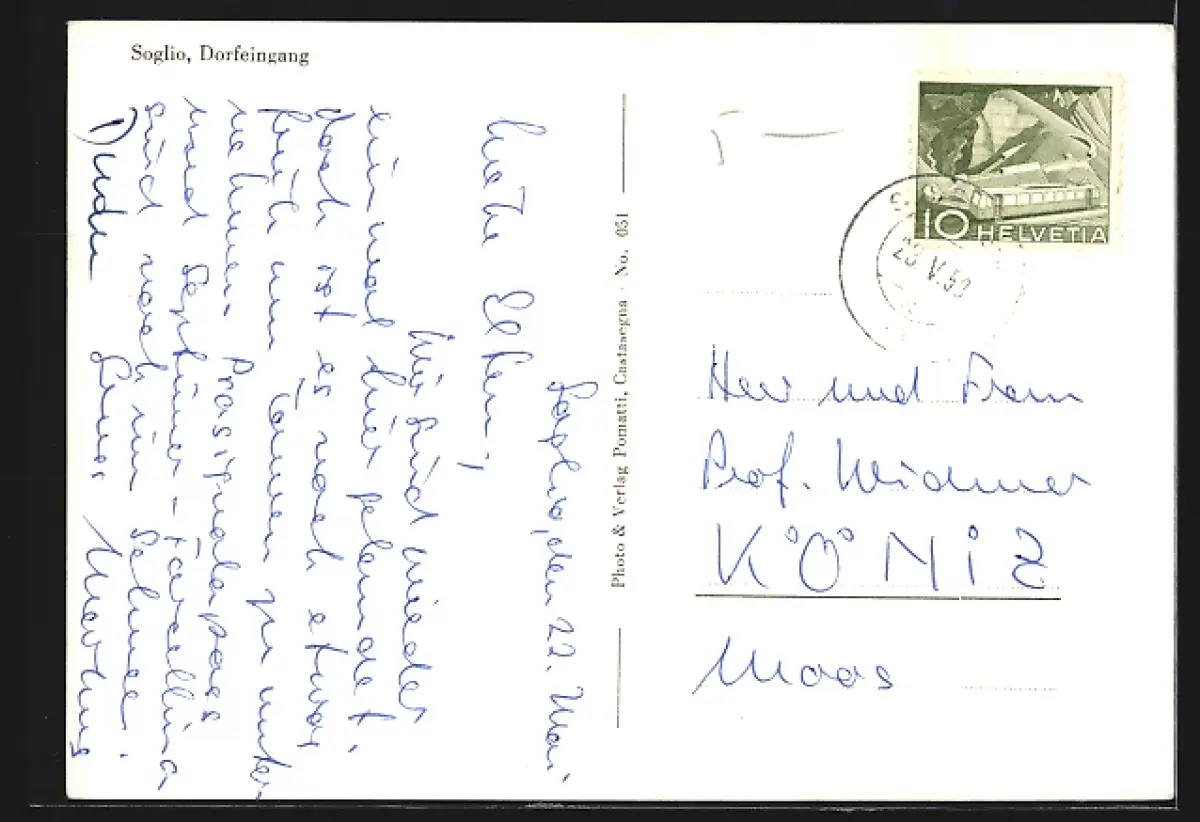 Soglio, Dorfeingang
Soglio, den 22. Mai
Liebe Eltern,
Wir sind wieder
einmal hier gelandet,
doch ist es noch etwas
früh um Touren zu unter-
nehmen. Prasignolapass
und Septimer – Forcellina
sind noch im Schnee.
Photo & Verlag Pomatti, Castasegna · No. 051
10 HELVETIA
V.
Herr und Frau
Prof. Widmer
KÖNIZ
Moos